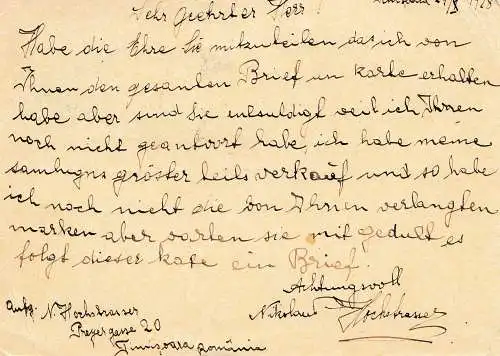 Sehr Geehrter Herr
Habe die Ehre Sie mitzuteilen das ich von
Ihnen den gesanten Brief un karte erhalten
habe aber sind Sie entsuldigt veil ich Ihnen
noch nicht geantvort habe, ich habe meine
samlugns gröster teils verkauf und so habe
ich noch nicht die von Ihnen verlangten
marken aber varten sie mit gedult es
folgt dieser kate ein Brief.
Achtungsvoll
Nikolaus Hochstrasser
N. Hochstrasser
Preyergasse 20
Timișoara România